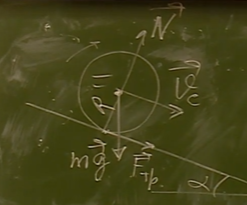 N
R =
V_c
mg F_тр.
α